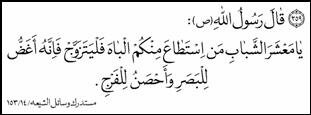 ﴿٣٥٩﴾ قَالَ رَسُولُ اللهِ (ص):
يٰا مَعْشَرَ الشَّبٰابِ مَنِ اسْتَطٰاعَ مِنْكُمْ الْبٰاهَ فَلْيَتَزَوَّجْ فَاِنَّهُ اَغَضُّ
لِلْبَصَرِ وَ اَحْصَنُ لِلْفَرْجِ .
مستدرك وسائل الشيعه/ ١٤/ ١٥٣